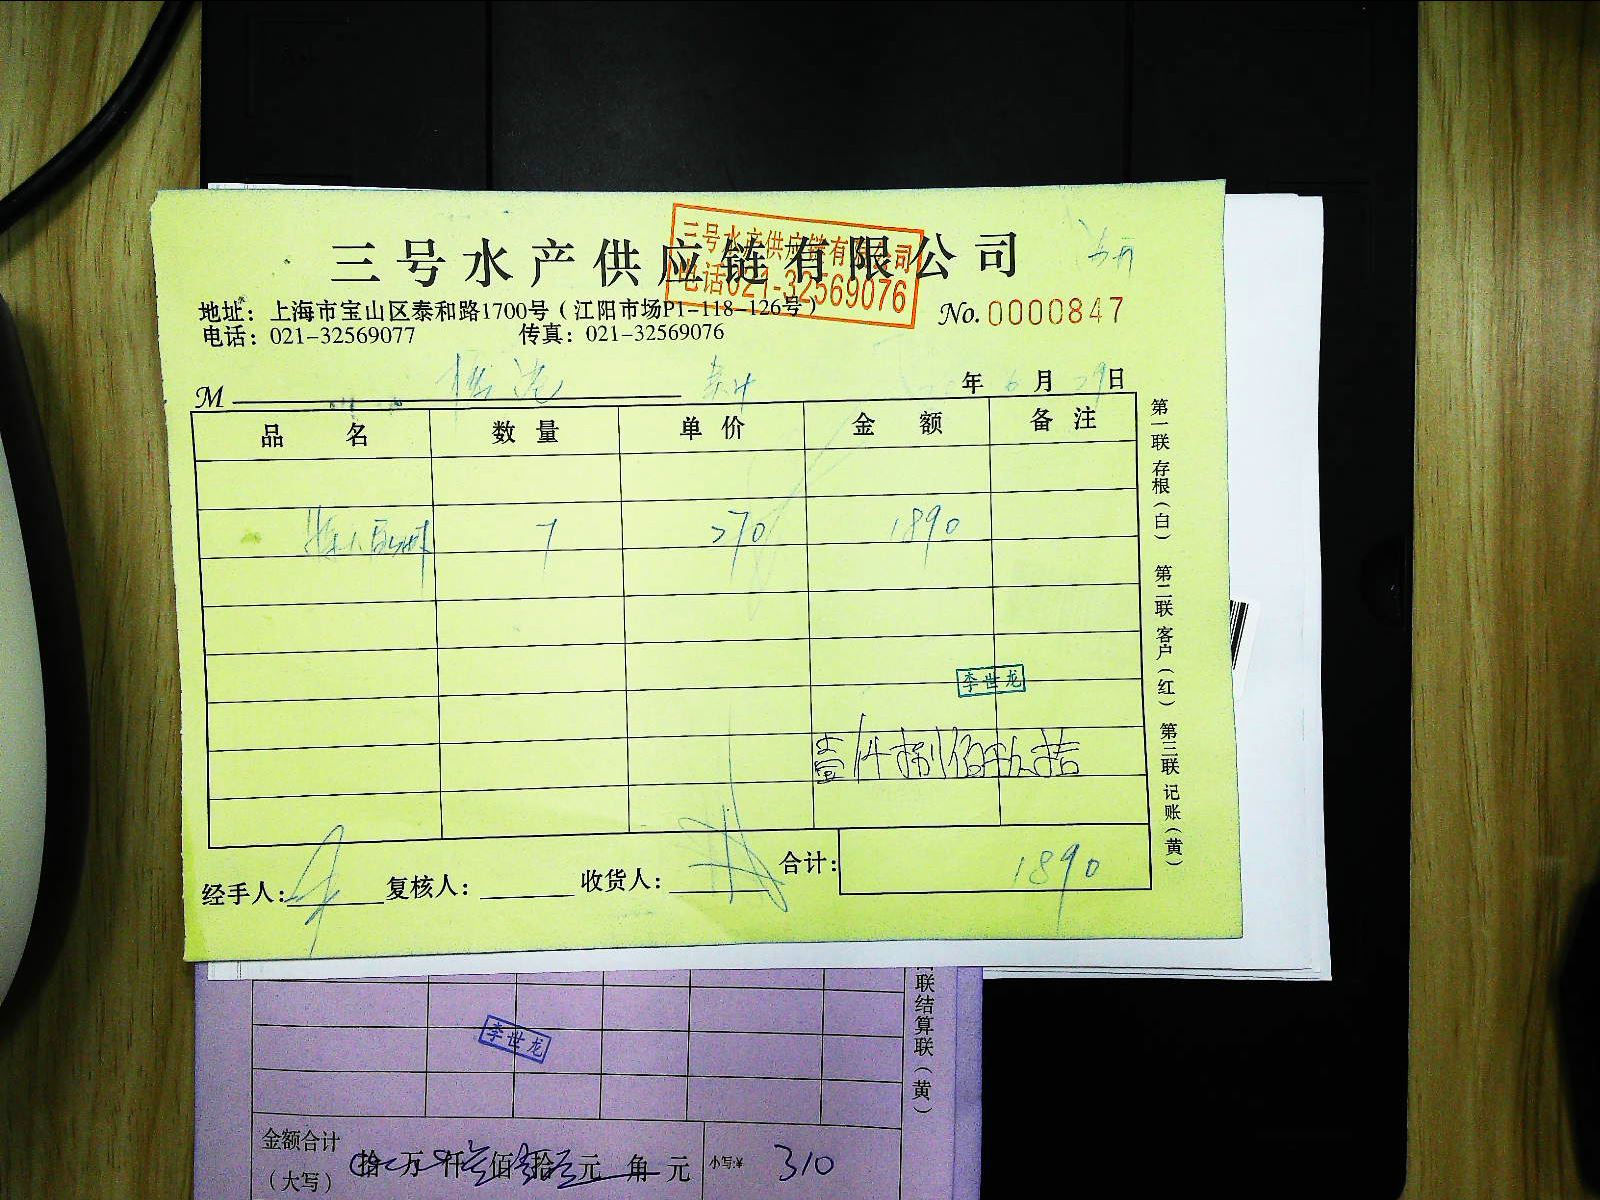 三号水产供应链有限公司
三号水产供应链有限公司
电话021-32569076
地址：上海市宝山区泰和路1700号（江阳市场P1-118-126号）
No.0000847
电话：021-32569077 传真：021-32569076
M 年 6 月 29 日
品 名 数 量 单 价 金 额 备 注
7 270 1890
李世龙
壹仟捌佰玖拾
经手人： 复核人： 收货人： 合计： 1890
第一联 存根（白） 第二联 客户（红） 第三联 记账（黄）
李世龙
联结算联（黄）
金额合计
（大写） 拾 万 仟 佰 拾 元 角 元 小写:¥ 310